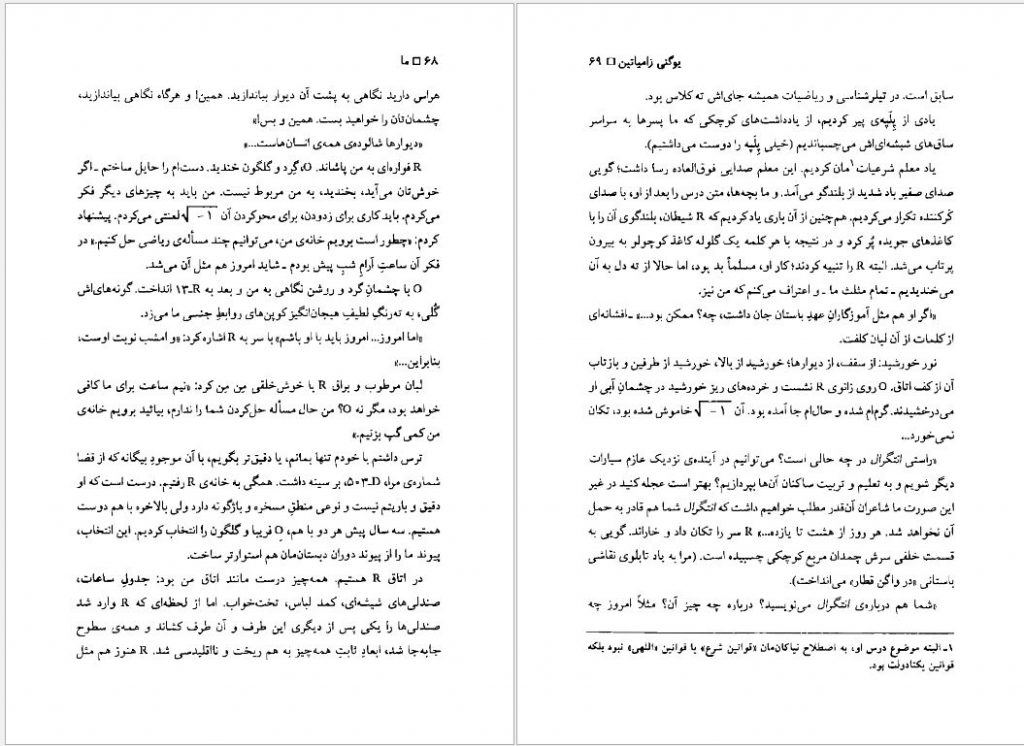 ۶۸ □ ما
هراس دارید نگاهی به پشت آن دیوار بیاندازید. همین! و هرگاه نگاهی بیاندازید،
چشمان‌تان را خواهید بست. همین و بس!»
«دیوارها شالوده‌ی همه‌ی انسان‌هاست...»
R فواره‌ای به من پاشاند. O، گرد و گلگون خندید. دست‌ام را حایل ساختم ـ اگر
خوش‌تان می‌آید، بخندید، به من مربوط نیست. من باید به چیزهای دیگر فکر
می‌کردم. باید کاری برای زدودن، برای محوکردن آن √۱- لعنتی می‌کردم. پیشنهاد
کردم: «چطور است برویم خانه‌ی من، می‌توانیم چند مسأله‌ی ریاضی حل کنیم.» در
فکر آن ساعتِ آرامِ شبِ پیش بودم ـ شاید امروز هم مثل آن می‌شد.
O با چشمانِ گرد و روشن نگاهی به من و بعد به R-۱۳ انداخت. گونه‌های‌اش
گُلی، به ته‌رنگِ لطیفِ هیجان‌انگیز کوپن‌های روابطِ جنسی ما می‌زد.
«اما امروز... امروز باید با او باشم» با سر به R اشاره کرد: «و امشب نوبت اوست،
بنابراین...»
لبان مرطوب و براق R با خوش‌خلقی مِن مِن کرد: «نیم ساعت برای ما کافی
خواهد بود، مگر نه O؟ من حال مسأله حل‌کردن شما را ندارم، بیائید برویم خانه‌ی
من کمی گپ بزنیم.»
ترس داشتم با خودم تنها بمانم، یا دقیق‌تر بگویم، با آن موجودِ بیگانه که از قضا
شماره‌ی مرا، D-۵۰۳، بر سینه داشت. همگی به خانه‌ی R رفتیم. درست است که او
دقیق و باریتم نیست و نوعی منطقِ مسخره و باژگونه دارد ولی بالاخره با هم دوست
هستیم. سه سال پیش هر دو با هم، O فریبا و گلگون را انتخاب کردیم. این انتخاب،
پیوند ما را از پیوند دوران دبستان‌مان هم استوارتر ساخت.
در اتاق R هستیم. همه‌چیز درست مانند اتاق من بود: جدولِ ساعات،
صندلی‌های شیشه‌ای، کمد لباس، تخت‌خواب. اما از لحظه‌ای که R وارد شد
صندلی‌ها را یکی پس از دیگری این طرف و آن طرف کشاند و همه‌ی سطوح
جابه‌جا شد، ابعادِ ثابتِ همه‌چیز به هم ریخت و نااقلیدسی شد. R هنوز هم مثل
یوگنی زامیاتین □ ۶۹
سابق است. در تیلرشناسی و ریاضیات همیشه جای‌اش ته کلاس بود.
یادی از پِلَپه‌ی پیر کردیم، از یادداشت‌های کوچکی که ما پسرها به سراسر
ساق‌های شیشه‌ای‌اش می‌چسباندیم (خیلی پِلَپه را دوست می‌داشتیم).
یاد معلم شرعیات۱مان کردیم. این معلم صدایی فوق‌العاده رسا داشت؛ گویی
صدای صفیر باد شدید از بلندگو می‌آمد. و ما بچه‌ها، متن درس را بعد از او، با صدای
کُرکننده تکرار می‌کردیم. هم‌چنین از آن باری یاد کردیم که R شیطان، بلندگوی آن را با
کاغذهای جویده پُر کرد و در نتیجه با هر کلمه یک گلوله کاغذ کوچولو به بیرون
پرتاب می‌شد. البته R را تنبیه کردند؛ کار او، مسلماً بد بود، اما حالا از ته دل به آن
می‌خندیدیم ـ تمام مثلث ما ـ و اعتراف می‌کنم که من نیز.
«اگر او هم مثل آموزگارانِ عهدِ باستان جان داشت، چه؟ ممکن بود...» ـ افشانه‌ای
از کلمات از آن لبان کلفت.
نور خورشید: از سقف، از دیوارها؛ خورشید از بالا، خورشید از طرفین و بازتاب
آن از کف اتاق. O روی زانوی R نشست و خرده‌های ریز خورشید در چشمانِ آبی او
می‌درخشیدند. گرم‌ام شده و حال‌ام جا آمده بود. آن √۱- خاموش شده بود، تکان
نمی‌خورد...
«راستی انتگرال در چه حالی است؟ می‌توانیم در آینده‌ی نزدیک عازم سیارات
دیگر شویم و به تعلیم و تربیت ساکنان آن‌ها بپردازیم؟ بهتر است عجله کنید در غیر
این صورت ما شاعران آن‌قدر مطلب خواهیم داشت که انتگرال شما هم قادر به حمل
آن نخواهد شد. هر روز از هشت تا یازده...» R سر را تکان داد و خاراند. گویی به
قسمت خلفی سرش چمدان مربع کوچکی چسبیده است. (مرا به یاد تابلوی نقاشی
باستانی «در واگن قطار» می‌انداخت).
«شما هم درباره‌ی انتگرال می‌نویسید؟ درباره چه چیز آن؟ مثلاً امروز چه
۱ـ البته موضوع درس او، به اصطلاح نیاکان‌مان «قوانین شرع» یا قوانین «اللهی» نبود بلکه
قوانین یکتادولت بود.